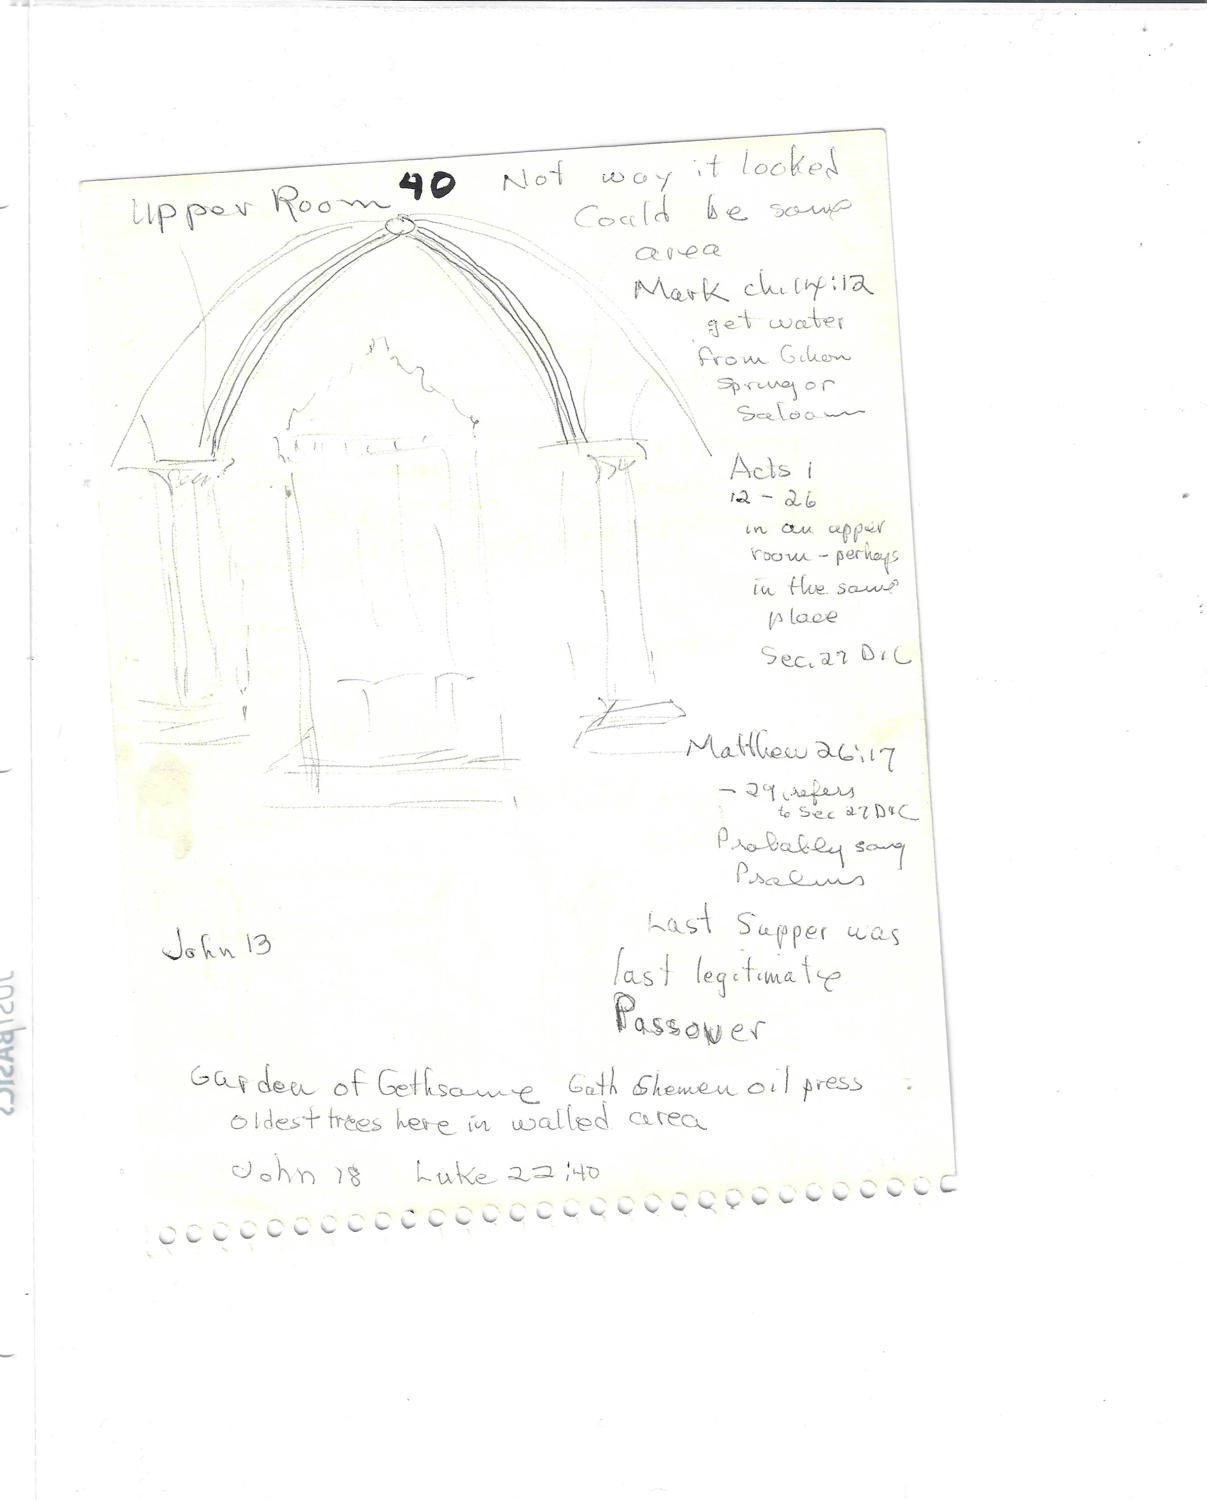 Upper Room 40 Not way it looked
Could be same
area
Mark ch. 14:12
get water
from Gihon
Spring or
Saloam
Acts 1
12 - 26
in an upper
room - perhaps
in the same
place
Sec. 27 D&C
Matthew 26:17
- 29, refers
to Sec 27 D&C
Probably song
Psalms
Last Supper was
last legitimate
Passover
John 13
Garden of Gethsame Gath Shemen oil press
oldest trees here in walled area
John 18 Luke 22:40
JUSTBASICS